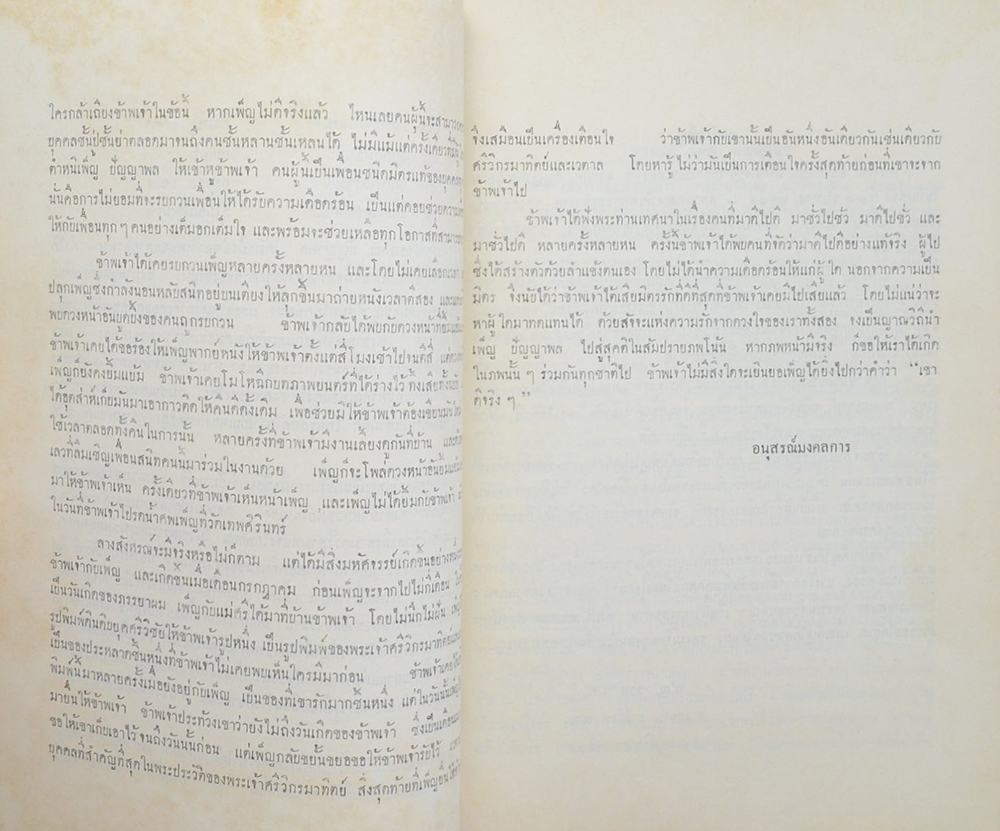 ใครกล้าเถียงข้าพเจ้าในข้อนี้ หากเพ็ญไม่ดีจริงแล้ว ไหนเลยคนผู้นี้จะสามารถ
บุคคลชั้นปู่ชั้นย่าตลอดมาจนถึงคนชั้นหลานชั้นเหลนได้ ไม่มีแม้แต่ครั้งเดียวที่
ตำหนิเพ็ญ ปัญญาพล ให้เข้าหูข้าพเจ้า คนผู้นี้เป็นเพื่อนชนิดมิตรแท้ของ
นั่นคือการไม่ยอมที่จะรบกวนเพื่อนให้ได้รับความเดือดร้อน เป็นแต่คอยช่วยความ
ให้กับเพื่อนทุก ๆ คนอย่างเต็มอกเต็มใจ และพร้อมจะช่วยเหลือทุกโอกาสที่สามารถ
ข้าพเจ้าได้เคยรบกวนเพ็ญหลายครั้งหลายหน และโดยไม่เคยเลือกเวลา
ปลุกเพ็ญซึ่งกำลังนอนหลับสนิทอยู่บนเตียงให้ลุกขึ้นมาถ่ายหนังเวลาตีสอง และ
พบดวงหน้าอันบูดบึ้งของคนถูกรบกวน ข้าพเจ้ากลับได้พบกับดวงหน้าที่
ข้าพเจ้าเคยได้ขอร้องให้เพ็ญพากย์หนังให้ข้าพเจ้าตั้งแต่สี่โมงเช้าไปจนตีสี่ แต่
เพ็ญก็ยังคงยิ้มแย้ม ข้าพเจ้าเคยโมโหฉีกบทภาพยนตร์ที่ได้ร่างไว้ ทิ้งเสียทั้ง
ได้อุตส่าห์เก็บมันมาเอากาวติดให้คืนดีดั้งเดิม เพื่อช่วยมิให้ข้าพเจ้าต้องเขียน
ใช้เวลาตลอดทั้งคืนในการนั้น หลายครั้งที่ข้าพเจ้ามีงานเลี้ยงดูกันที่บ้าน และ
เลวที่ลืมเชิญเพื่อนสนิทคนนี้มาร่วมในงานด้วย เพ็ญก็จะโพล่ดวงหน้าอันยิ้ม
มาให้ข้าพเจ้าเห็น ครั้งเดียวที่ข้าพเจ้าเห็นหน้าเพ็ญ และเพ็ญไม่ได้ยิ้มกับข้าพเจ้า
ในวันที่ข้าพเจ้าไปรดน้ำศพเพ็ญที่วัดเทพศิรินทร์
ลางสังหรณ์จะมีจริงหรือไม่ก็ตาม แต่ได้มีสิ่งมหัศจรรย์เกิดขึ้นอย่าง
ข้าพเจ้ากับเพ็ญ และเกิดขึ้นเมื่อเดือนกรกฎาคม ก่อนเพ็ญจะจากไปไม่กี่เดือน
เป็นวันเกิดของภรรยาผม เพ็ญกับแม่ศรีได้มาที่บ้านข้าพเจ้า โดยไม่นึกไม่ฝัน
รูปพิมพ์ดินดิบยุคศรีวิชัยให้ข้าพเจ้ารูปหนึ่ง เป็นรูปพิมพ์ของพระเจ้าศรีวิกรมาทิตย์
เป็นของประหลาดชิ้นหนึ่งที่ข้าพเจ้าไม่เคยพบเห็นใครมีมาก่อน ข้าพเจ้าเคย
พิมพ์นี้มาหลายครั้งเมื่อยังอยู่กับเพ็ญ เป็นของที่เขารักมากชิ้นหนึ่ง แต่ในวันนั้น
มายื่นให้ข้าพเจ้า ข้าพเจ้าประท้วงเขาว่ายังไม่ถึงวันเกิดของข้าพเจ้า ซึ่งเป็นเดือน
ขอให้เขาเก็บเอาไว้จนถึงวันนั้นก่อน แต่เพ็ญกลับขยั้นขยอขอให้ข้าพเจ้ารับไว้
บุคคลที่สำคัญที่สุดในพระประวัติของพระเจ้าศรีวิกรมาทิตย์ สิ่งสุดท้ายที่เพ็ญ
จึงเสมือนเป็นเครื่องเตือนใจ ว่าข้าพเจ้ากับเขานั้นเป็นอันหนึ่งอันเดียวกันเช่นเดียวกับ
ศรีวิกรมาทิตย์และเวตาล โดยหารู้ไม่ว่ามันเป็นการเตือนใจครั้งสุดท้ายก่อนที่เขาจะจาก
ข้าพเจ้าไป
ข้าพเจ้าได้ฟังพระท่านเทศนาในเรื่องคนที่มาดีไปดี มาชั่วไปชั่ว มาดีไปชั่ว และ
มาชั่วไปดี หลายครั้งหลายหน ครั้งนี้ข้าพเจ้าได้พบคนที่จัดว่ามาดีไปดีอย่างแท้จริง ผู้ไป
ซึ่งได้สร้างตัวด้วยลำแข้งตนเอง โดยไม่ได้นำความเดือดร้อนให้แก่ผู้ใด นอกจากความเป็น
มิตร จึงนับได้ว่าข้าพเจ้าได้เสียมิตรรักที่ดีที่สุดที่ข้าพเจ้าเคยมีไปเสียแล้ว โดยไม่แน่ว่าจะ
หาผู้ใดมาทดแทนได้ ด้วยสัจจะแห่งความรักจากดวงใจของเราทั้งสอง จงเป็นญาณวิถีนำ
เพ็ญ ปัญญาพล ไปสู่สุคติในสัมปรายภพโน้น หากภพหน้ามีจริง ก็ขอให้เราได้เกิด
ในภพนั้น ๆ ร่วมกันทุกชาติไป ข้าพเจ้าไม่มีสิ่งใดจะเยินยอเพ็ญได้ยิ่งไปกว่าคำว่า “เขา
ดีจริง ๆ”
อนุสรณ์มงคลการ